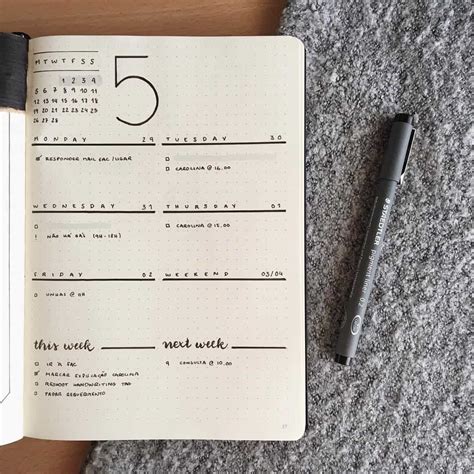 M T W T F S S
1 2 3 4
5 6 7 8 9 10 11
12 13 14 15 16 17 18
19 20 21 22 23 24 25
26 27 28
5
MONDAY 29
RESPONDER MAIL FAC/LUGAR
TUESDAY 30
CAROLINA @ 16.00
WEDNESDAY 31
! NÃO HÁ (14H-18H)
THURSDAY 01
CAROLINA @ 15.00
FRIDAY 02
UNHAS @
WEEKEND 03/04
this week
IR À FAC
MARCAR CAROLINA
RESHOOT HANDWRITING TAG
next week
CONSULTA @ 10.00
STAEDTLER pigment liner